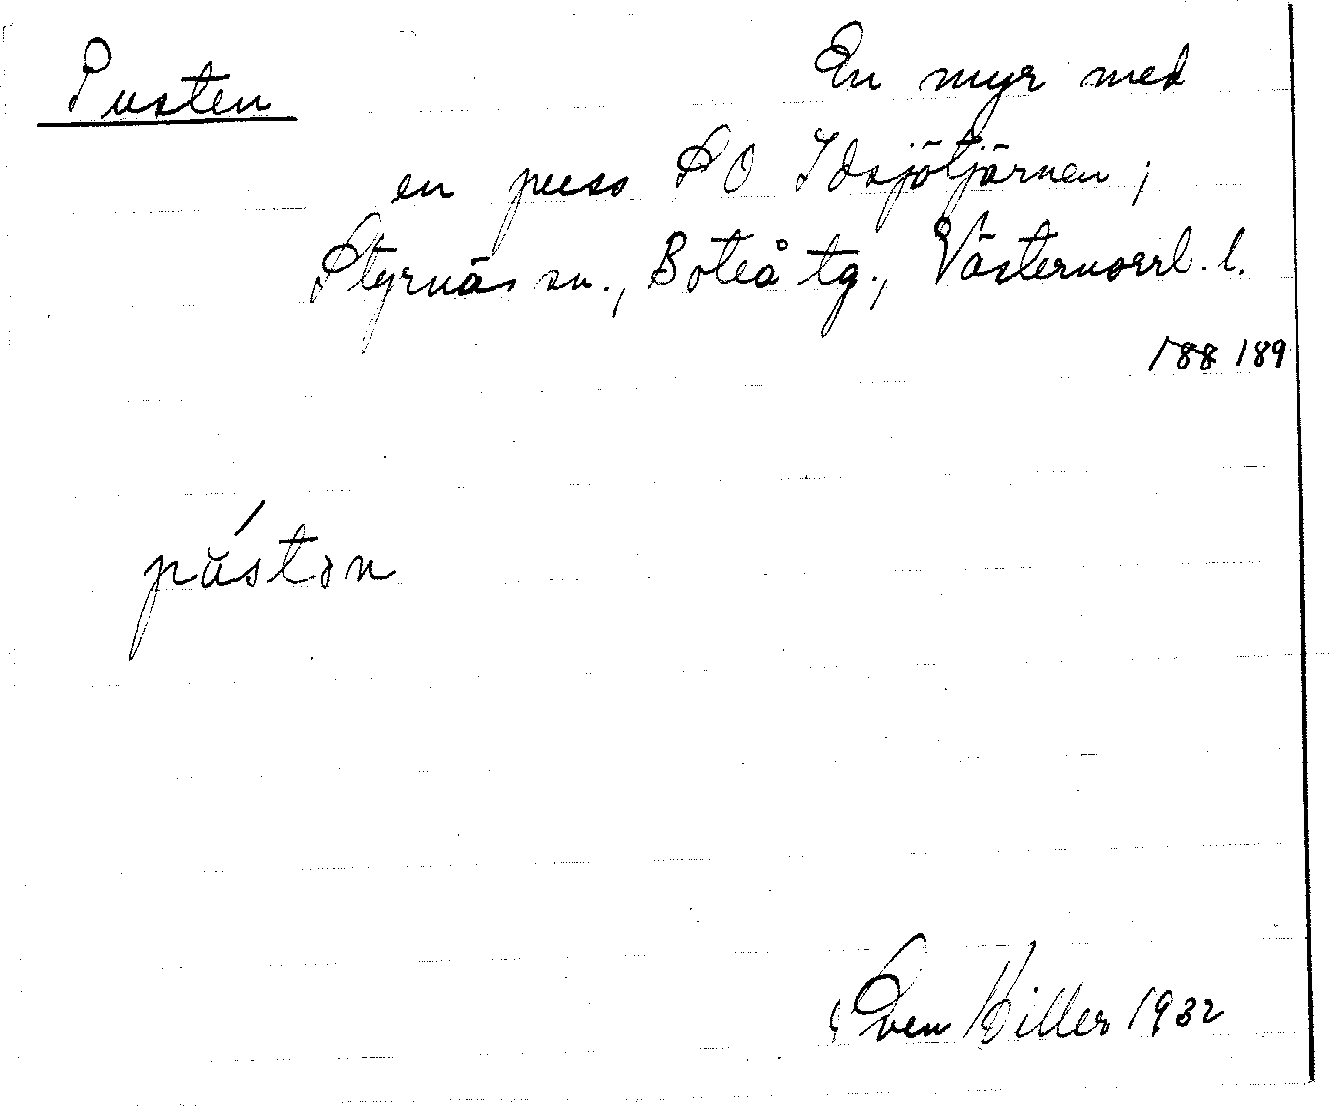 Pusten
En myr med
en puss SO Idsjötjärnen,
Styrnäs sn., Boteå tg., Västernorrl. l.
188 189
pústən
Sven Hiller 1932